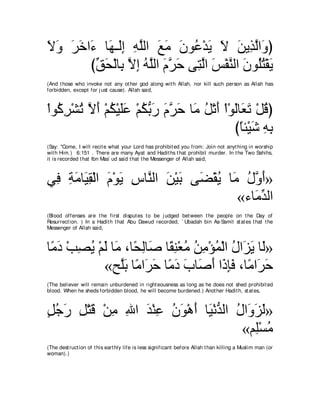 وَالَّذِينَ لاَ يَدْعُونَ مَعَ اللَّهِ إِلَـهَا ءَاخَرَ وَلاَ)
(يَقْتُلُونَ النَّفْسَ الَّتِى حَرَّمَ اللَّهُ إِلاَّ بِالْحَقِّ
(And those who invoke not any other god along with Allah, nor kill such person as Allah has forbidden, except for just cause). Allah said,
قُلْ تَعَالَوْاْ أَتْلُ مَا حَرَّمَ رَبُّكُمْ عَلَيْكُمْ أَلاَّ تُشْرِكُواْ)
(بِهِ شَيْئاً
(Say: "Come, I will recite what your Lord has prohibited you from: Join not anything in worship with Him.) 6:151 . There are many Ayat and Hadiths that prohibit murder. In the Two Sahihs, it is recorded that Ibn Mas`ud said that the Messenger of Allah said,
«أَوَّلُ مَا يُقْضَى بَيْنَ النَّاسِ يَوْمَ الْقِيَامَةِ فِي
الدِّمَاء»
(Blood offenses are the first disputes to be judged between the people on the Day of Resurrection. ) In a Hadith that Abu Dawud recorded, `Ubadah bin As-Samit states that the Messenger of Allah said,
«لَا يَزَالُ الْمُؤْمِنُ مُعْنِقًا صَالِحًا، مَا لَمْ يُصِبْ دَمًا
حَرَامًا، فَإِذَا أَصَابَ دَمًا حَرَامًا بَلَّح»
(The believer will remain unburdened in righteousness as long as he does not shed prohibited blood. When he sheds forbidden blood, he will become burdened.) Another Hadith, states,
«لَزَوَالُ الدُّنْيَا أَهْوَنُ عِنْدَ اللهِ مِنْ قَتْلِ رَجُلٍ
مُسْلِم»
(The destruction of this earthly life is less significant before Allah than killing a Muslim man (or woman).)